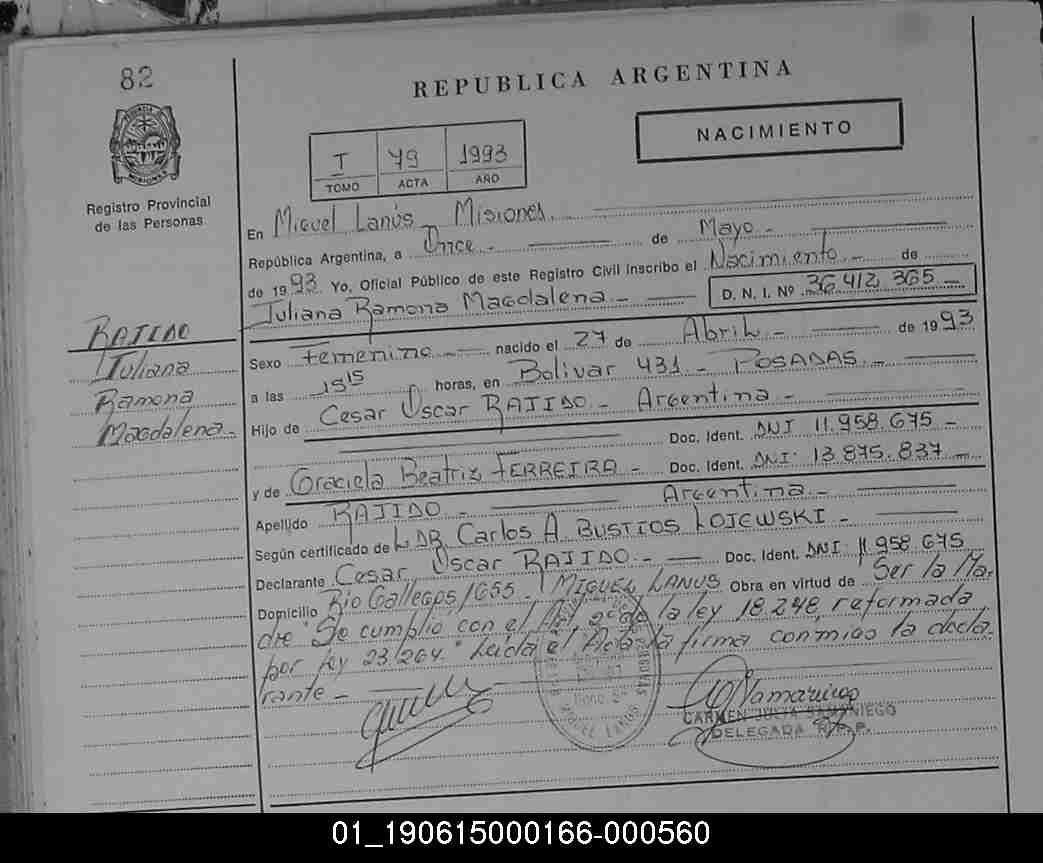 82
REPUBLICA ARGENTINA
NACIMIENTO
PROVINCIA
MISIONES
Registro Provincial
de las Personas
I 79 1993
TOMO ACTA AÑO
En Miguel Lanús - Misiones.
República Argentina, a Once - de Mayo -
de 1993 Yo, Oficial Público de este Registro Civil inscribo el Nacimiento - de
Juliana Ramona Magdalena - D. N. I. Nº 36.412.365 -
RAJIDO
Juliana
Ramona
Magdalena -
Sexo Femenino - nacido el 27 de Abril - de 1993
a las 15 15 horas, en Bolivar 431 - POSADAS -
Hijo de Cesar Oscar RAJIDO - Argentina -
Doc. Ident. DNI 11.958.675 -
y de Graciela Beatriz FERREIRA - Doc. Ident. DNI 13.875.837 -
Argentina -
Apellido RAJIDO -
Según certificado de L DR Carlos A. BUSTIOS LOJEWSKI -
Declarante Cesar Oscar RAJIDO - Doc. Ident. DNI 11.958.675
Domicilio Rio Gallegos/655 - MIGUEL LANUS Obra en virtud de Ser la Ma-
dre "Se cumplio con el la ley 18.248, reformada
por ley 23/264." Leida el Acta la firma conmigo la decla-
rante -
MIGUEL LANUS
CARMEN JULIA SAMANIEGO
DELEGADA R.P.P.
01_190615000166-000560